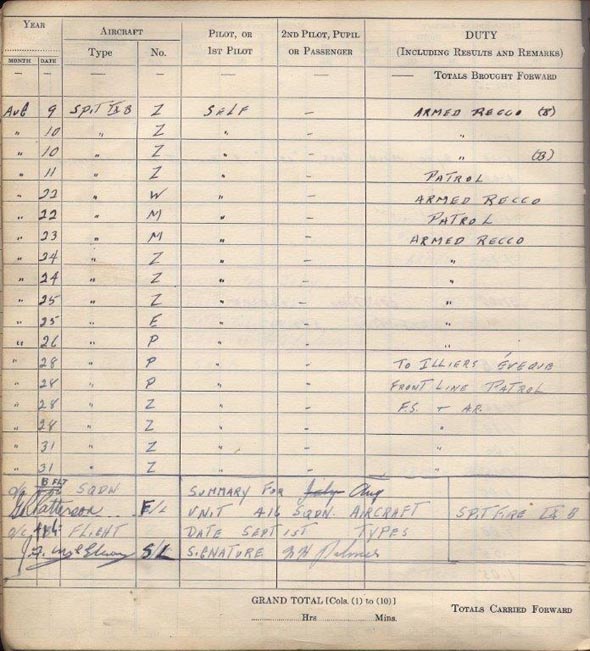 YEAR AIRCRAFT PILOT, OR 2ND PILOT, PUPIL DUTY
MONTH DATE Type No. 1ST PILOT OR PASSENGER (INCLUDING RESULTS AND REMARKS)
— — — — — — — TOTALS BROUGHT FORWARD
AUG 9 SPIT IX B Z SELF — ARMED RECCO (B)
" 10 " Z " — "
" 10 " Z " — " (B)
" 11 " Z " — PATROL
" 22 " W " — ARMED RECCO
" 22 " M " — PATROL
" 23 " M " — ARMED RECCO
" 24 " Z " — "
" 24 " Z " — "
" 25 " Z " — "
" 25 " E " — "
" 26 " P " — "
" 28 " P " — TO ILLIERS
" 28 " P " — FRONT LINE PATROL
" 28 " Z " — F.S. + AR.
" 28 " Z " — "
" 31 " Z " — "
" 31 " Z " — "
O/C B FLT SQDN SUMMARY FOR July Aug
Patterson F/L UNIT 416 SQDN. AIRCRAFT SPITFIRE IX B
O/C FLIGHT DATE SEPT 1ST TYPES
S/L SIGNATURE Palmer
GRAND TOTAL [Cols. (1) to (10)]
Hrs Mins. TOTALS CARRIED FORWARD